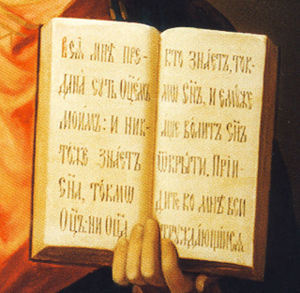 Всѧ̑ мнѣ пре-
дана сꙋть Оц҃емъ
моимъ: и ник-
тоже знаетъ
Сн҃а, токмѡ
Оц҃ъ: ни Оц҃а
кто знаетъ, ток-
мѡ Сн҃ъ, и емꙋже
аще волитъ Сн҃ъ
ѿкрыти. Прїи-
дите ко мнѣ вси
трꙋждающїисѧ